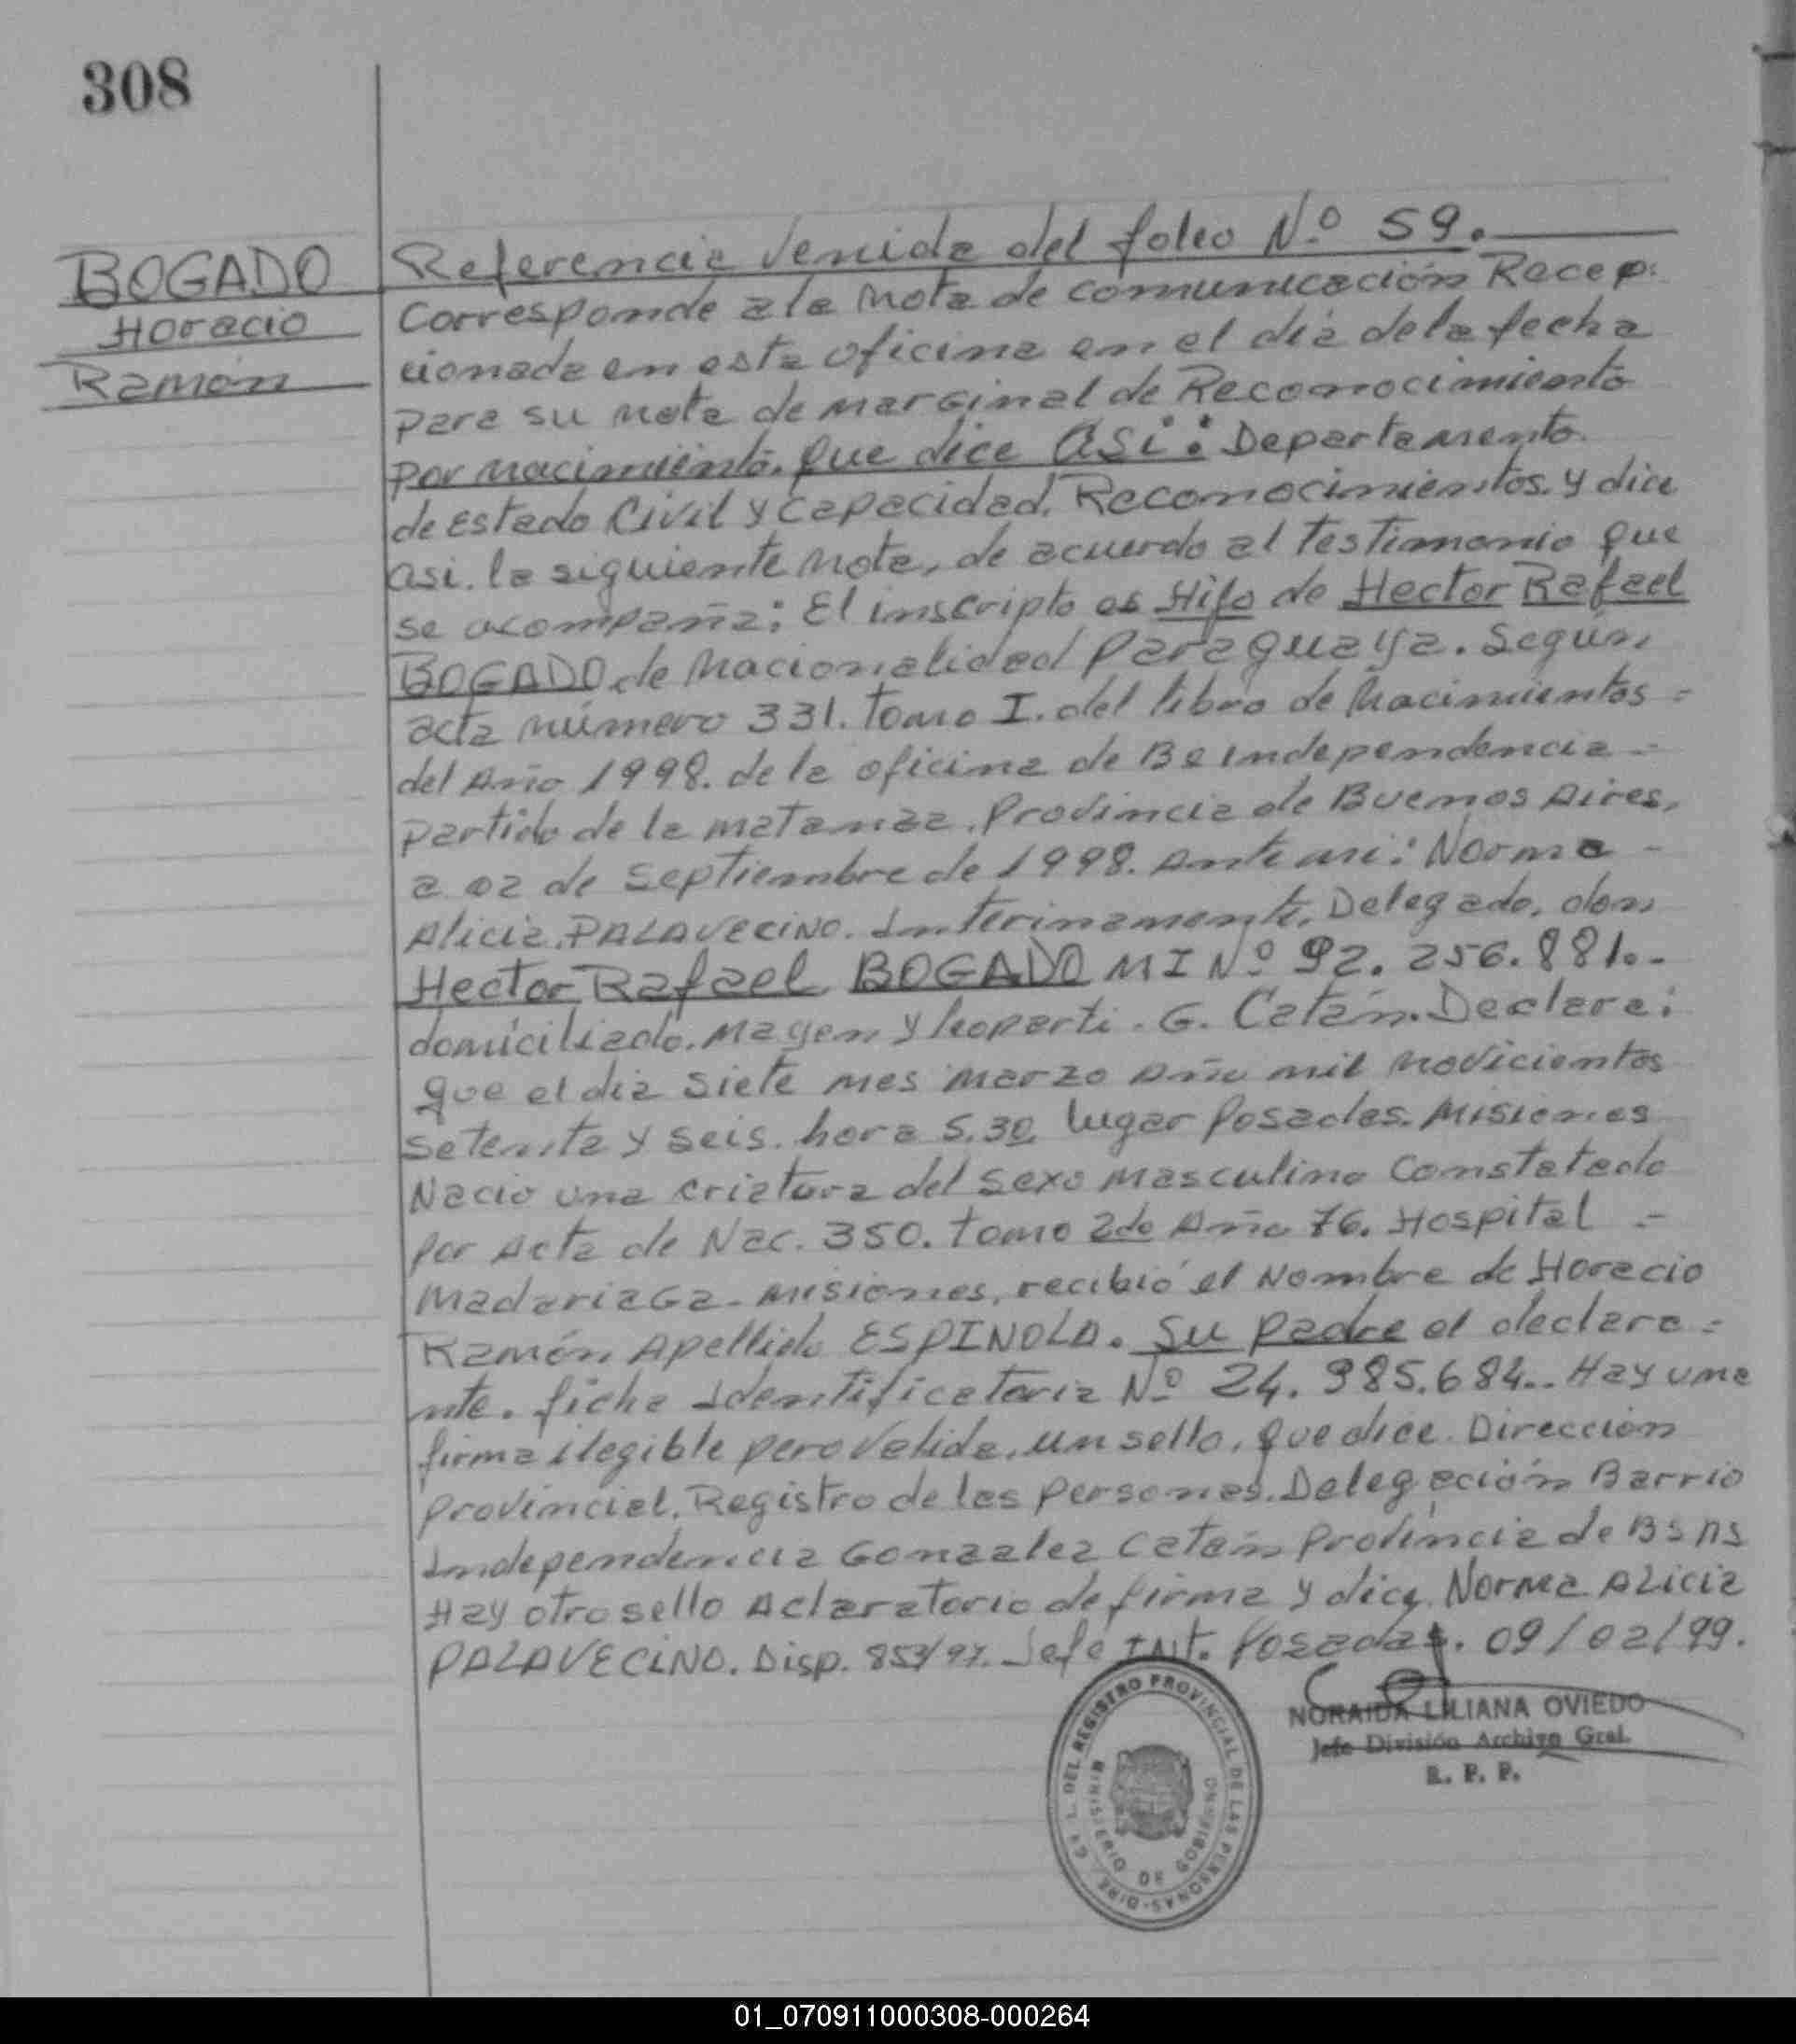 308
BOGADO
Horacio
Ramón
Referencia venida del folio Nº 59.
Corresponde a la nota de comunicación Recep-
cionada en esta oficina en el día de la fecha
para su nota de marginal de Reconocimiento
por nacimiento. que dice Así: Departamento
de Estado Civil y Capacidad. Reconocimientos. y dice
asi. la siguiente nota, de acuerdo al testimonio que
se acompaña; El inscripto es Hijo de Hector Rafael
BOGADO de Nacionalidad Paraguaya. Según
acta número 331. tomo I. del libro de Nacimientos =
del Año 1998. de la oficina de Bº independencia =
partido de la matanza. Provincia de Buenos Aires,
a 02 de Septiembre de 1998. Ante mi: Norma -
Alicia PALAVECINO. Interinamente. Delegado, don
Hector Rafael BOGADO MI Nº 92. 256. 881.-
domiciliado. Magen y leoparti. G. Catán. Declara:
que el dia siete mes marzo Año mil novicientos
setenta y seis. hora 5.30. lugar Posadas. Misiones
Nacio una criatura del sexo masculino Constatado
por Acta de Nac. 350. tomo 2do Año 76. Hospital =
Madariaga - misiones, recibió el Nombre de Horacio
Ramón Apellido ESPINOLA. Su padre el declara =
nte. ficha Identificatoria Nº 24. 985.684.. Hay una
firma ilegible pero valida. un sello, que dice. Dirección
Provincial. Registro de las personas. Delegación Barrio
Independencia Gonzalez Catán Provincia de Bs As
Hay otro sello Aclaratorio de firma y dice. Norma Alicia
PALAVECINO. Disp. 853/97. Jefe Int. Posadas. 09/02/99.
NORAIDA LILIANA OVIEDO
Jefe División Archivo Gral.
R. P. P.
DEL REGISTRO PROVINCIAL DE LAS PERSONAS-DIRE
MINISTERIO DE GOBIERNO
01_070911000308-000264